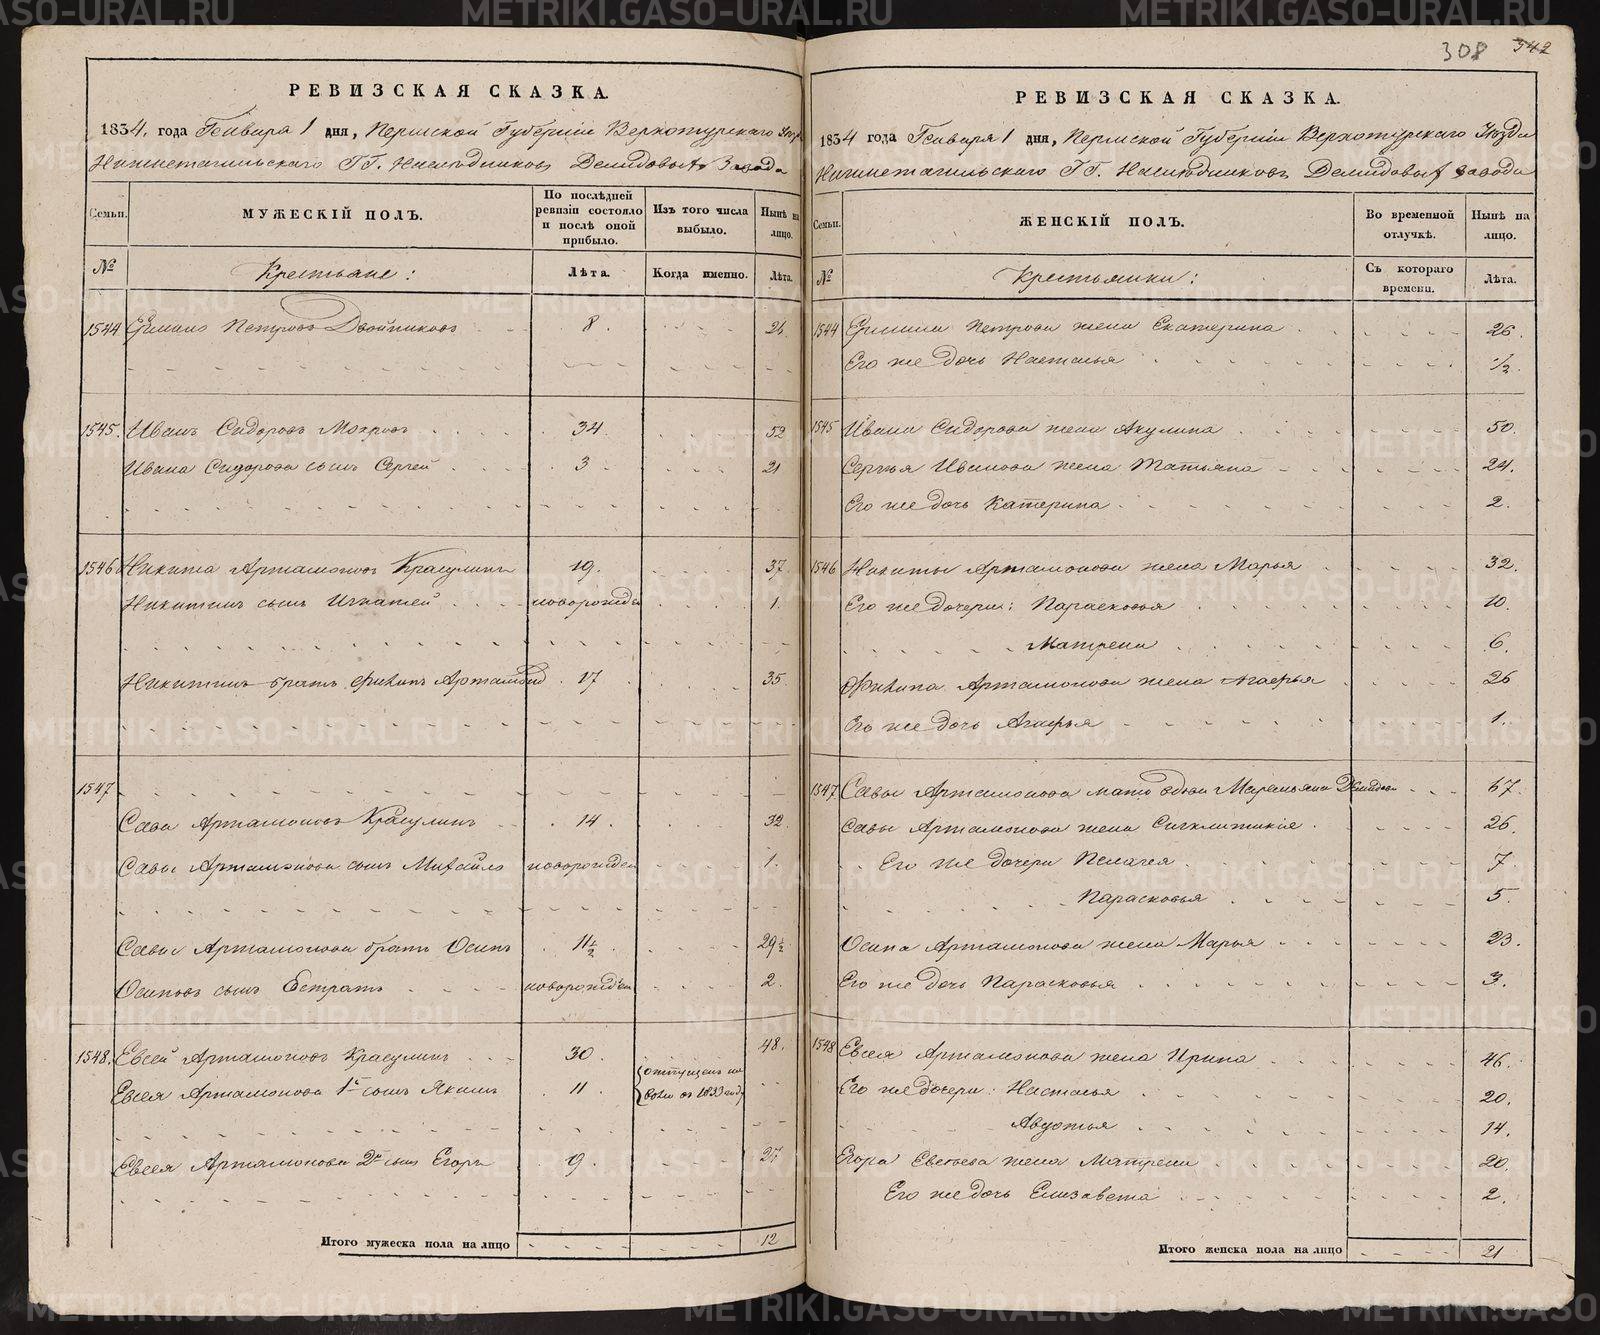 308 342
РЕВИЗСКАЯ СКАЗКА.
1834. года Генваря 1 дня, Пермской Губерніи Верхотурскаго Уезда
Нижнетагильскаго ГГ. Наследниковъ Демидовыхъ Завода
Семьи.
МУЖЕСКІЙ ПОЛЪ.
По послѣдней ревизіи состояло и послѣ оной прибыло.
Изъ того числа выбыло.
Нынѣ на лицо.
№ Крестьяне: Лѣта. Когда именно. Лѣта.
1544 Петровъ Двойниковъ 8.
1545. Иванъ Сидоровъ Мохровъ 34 52
Ивана Сидорова сынъ Сергей 3 21
1546 Никита Артамоновъ Красулинъ 19. 37
Никитинъ сынъ Игнатей новорожден 1.
Никитинъ братъ Филипъ Артамонов 17 35
1547
Сава Артамоновъ Красулинъ 14. 32
Савы Артамонова сынъ Михайло новорожден 1.
Савы Артамонова братъ Осипъ 11½ 29½
Осиповъ сынъ Естратъ новорожден 2.
1548. Евсей Артамоновъ Красулинъ 30. 48.
Евсея Артамонова 1й сынъ Якимъ 11. отпущен на волю в 1833 году
Евсея Артамонова 2й сынъ Егоръ 9. 27
Итого мужеска пола на лицо 12
РЕВИЗСКАЯ СКАЗКА.
1834 года Генваря 1 дня, Пермской Губерніи Верхотурскаго Уезда
Нижнетагильскаго ГГ. Наследниковъ Демидовыхъ завода
Семьи.
ЖЕНСКІЙ ПОЛЪ.
Во временной отлучкѣ.
Нынѣ на лицо.
№ Крестьянки: Съ котораго времени. Лѣта.
1544 Петрова жена Екатерина 26.
Его же дочь Настасья 1/2.
1545 Ивана Сидорова жена Акулина 50.
Сергея Иванова жена Татьяна 24.
Его же дочь Катерина 2.
1546 Никиты Артамонова жена Марья 32.
Его же дочери: Парасковья 10.
Матрена 6.
Филипа Артамонова жена Агафья 26
Его же дочь Агафья 1.
1547 Савы Артамонова мать вдова Маремьяна 67.
Савы Артамонова жена Сигклитикія 26.
Его же дочери Пелагея 7.
Парасковья 5.
Осипа Артамонова жена Марья 23.
Его же дочь Парасковья 3.
1548 Евсея Артамонова жена Ирина 46.
Его же дочери: Настасья 20.
Авдотья 14.
Егора Евсеева жена Матрена 20.
Его же дочь Елизавета 2.
Итого женска пола на лицо 21
METRIKI.GASO-URAL.RU